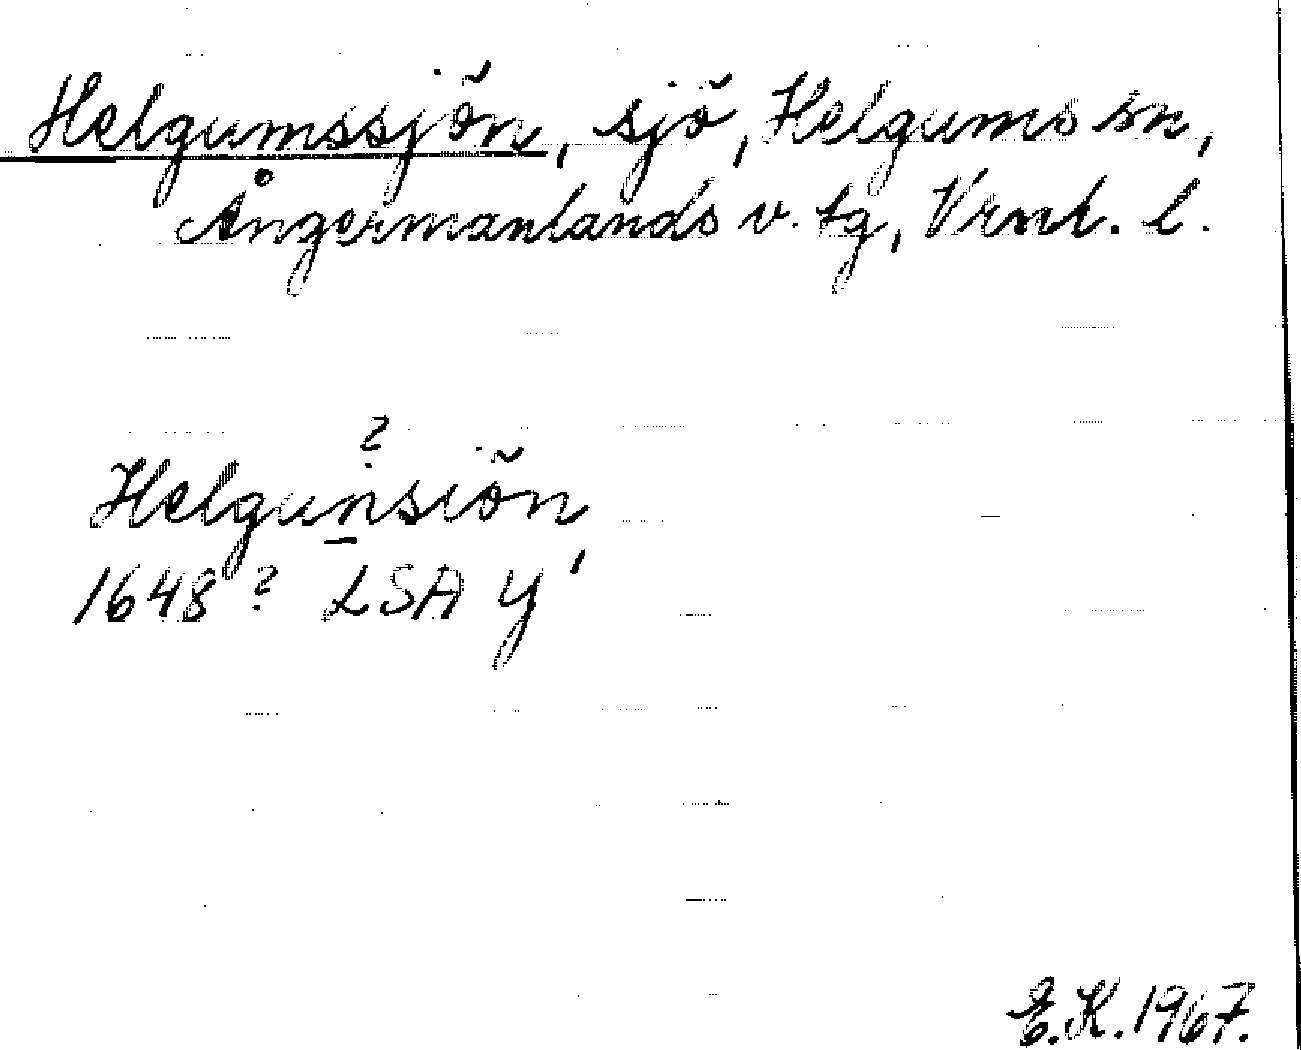 Helgumssjön, sjö, Helgums sn,
Ångermanlands v. tg, Vrnl. l.
?
Helgunsiön,
1648? LSA Y
E.K. 1967.